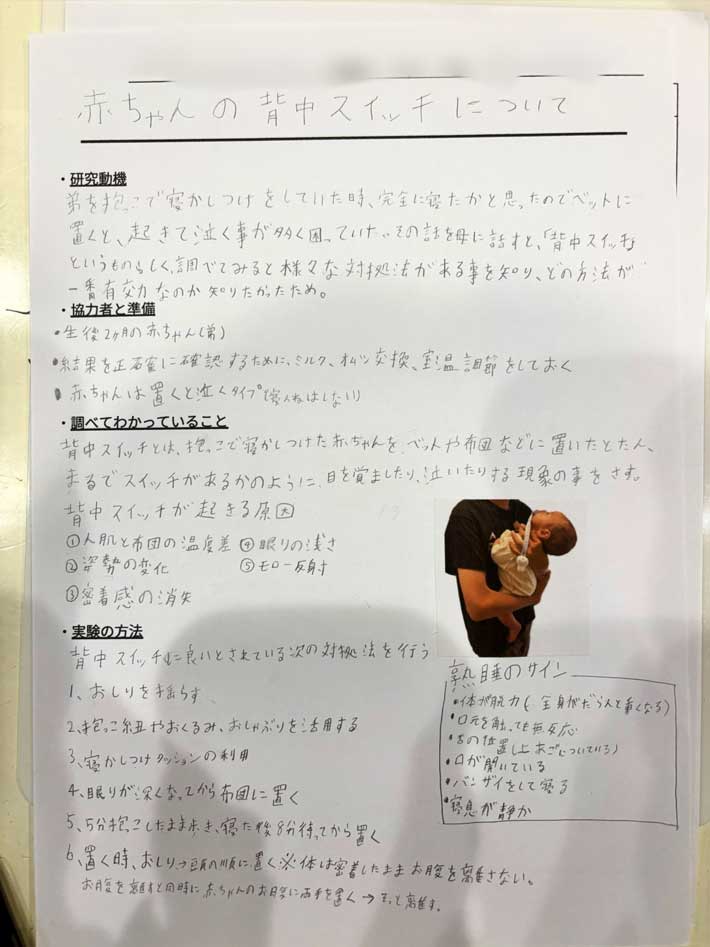 赤ちゃんの背中スイッチについて
・研究動機
弟を抱っこで寝かしつけをしていた時、完全に寝たかと思ったのでベットに
置くと、起きて泣く事が多く困っていた。その話を母に話すと、「背中スイッチ」
というものらしく、調べてみると様々な対処法がある事を知り、どの方法が
一番有効なのか知りたかったため。
・協力者と準備
•生後2ヶ月の赤ちゃん(弟)
•結果を正確に確認するために、ミルク、オムツ交換、室温調節をしておく
•赤ちゃんは置くと泣くタイプ
・調べてわかっていること
背中スイッチとは、抱っこで寝かしつけた赤ちゃんを、ベットや布団などに置いたとたん、
まるでスイッチがあるかのように、目を覚ましたり、泣いたりする現象の事をさす。
背中スイッチが起きる原因
①人肌と布団の温度差 ④眠りの浅さ
②姿勢の変化 ⑤モロー反射
③密着感の消失
・実験の方法
背中スイッチに良いとされている次の対処法を行う
1、おしりを揺らす
2、抱っこ紐やおくるみ、おしゃぶりを活用する
3、寝かしつけクッションの利用
4、眠りが深くなってから布団に置く
5、5分抱っこしたまま歩き、寝た後8分待ってから置く
6、置く時、おしり→頭の順に置く※体は密着したままお腹を離さない。
お腹を離すと同時に赤ちゃんのお腹に両手を置く→そっと離す。
熟睡のサイン
•体が脱力(全身がだらんと重くなる)
•口元を触っても無反応
•舌の位置(上あごについている)
•口が開いている
•バンザイをして寝る
•寝息が静か